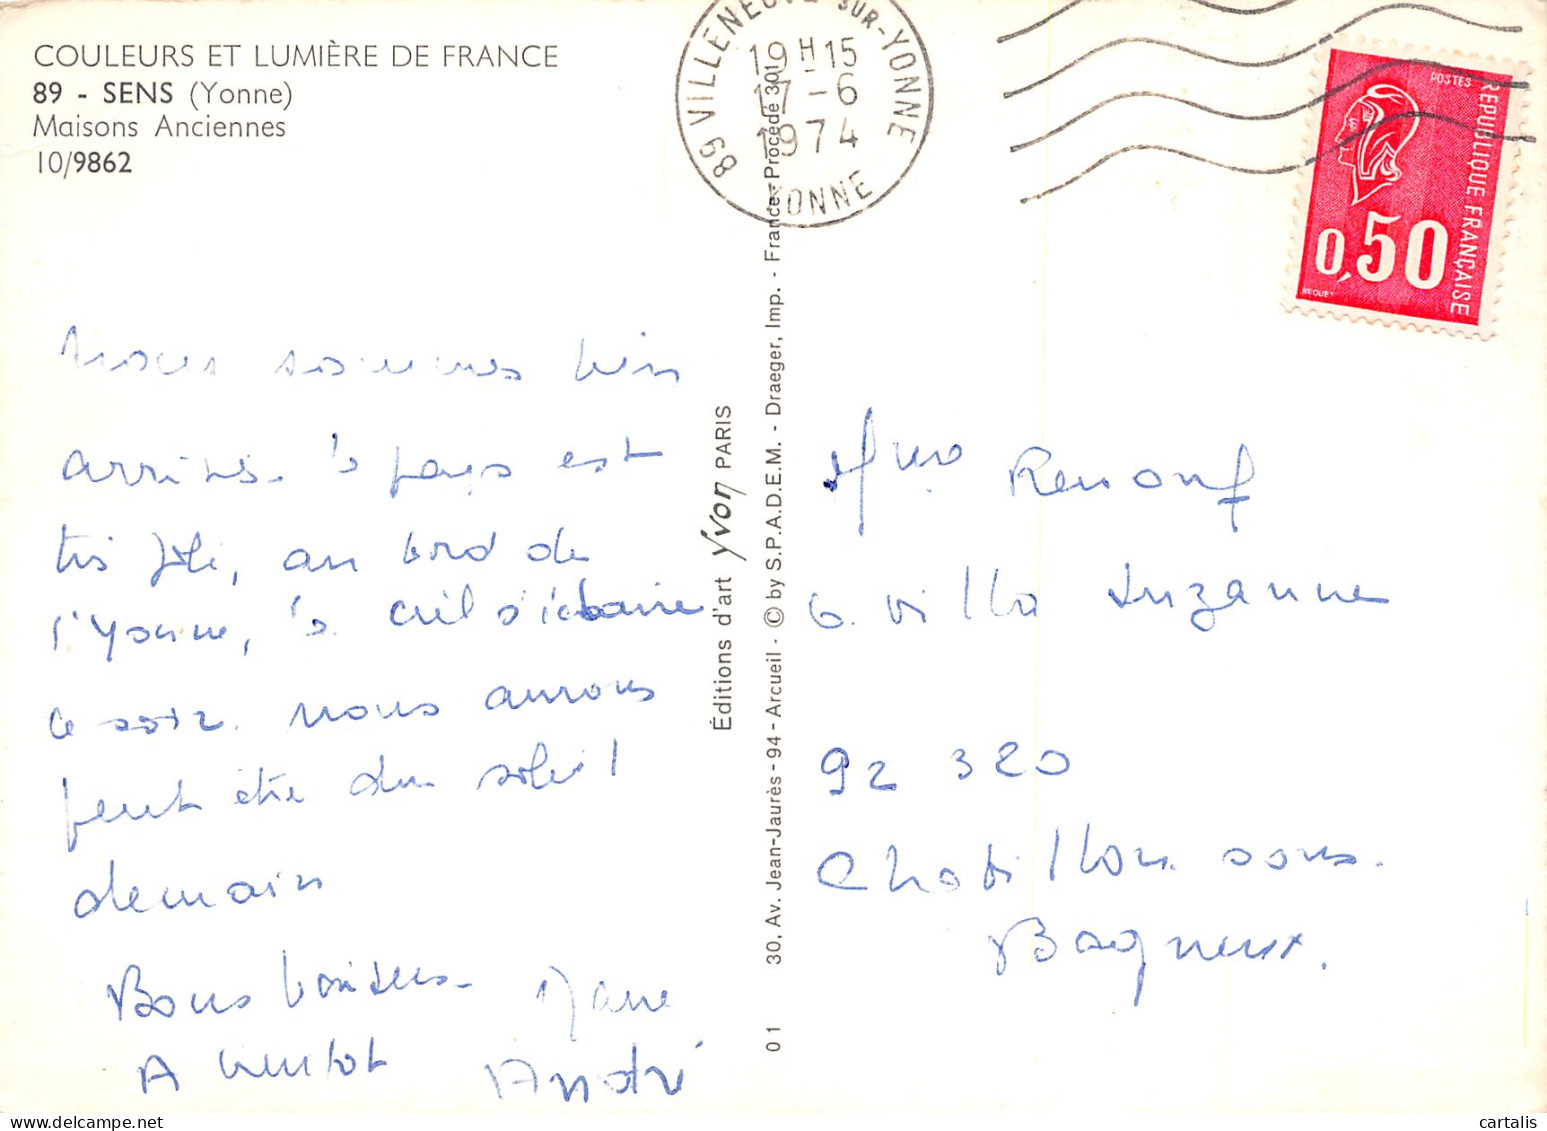 COULEURS ET LUMIÈRE DE FRANCE
89 - SENS (Yonne)
Maisons Anciennes
10/9862
89 VILLENEUVE-SUR-YONNE
19H15
17-6
1974
YONNE
POSTES
REPUBLIQUE FRANÇAISE
0,50
BEQUET
Nous sommes bien
arrivés. le pays est
très joli, au bord de
l'Yonne, le ciel s'éclaire
ce soir. nous aurons
peut être du soleil
demain
Bons baisers.
A bientot
André
Éditions d'art Yvon PARIS
01 30, Av. Jean-Jaurès - 94 - Arcueil - © by S.P.A.D.E.M. - Draeger, Imp. - France - Procédé 301
Renouf
6. villa Suzanne
92 320
Chatillon sous.
Bagneux.
cartalis - www.delcampe.net